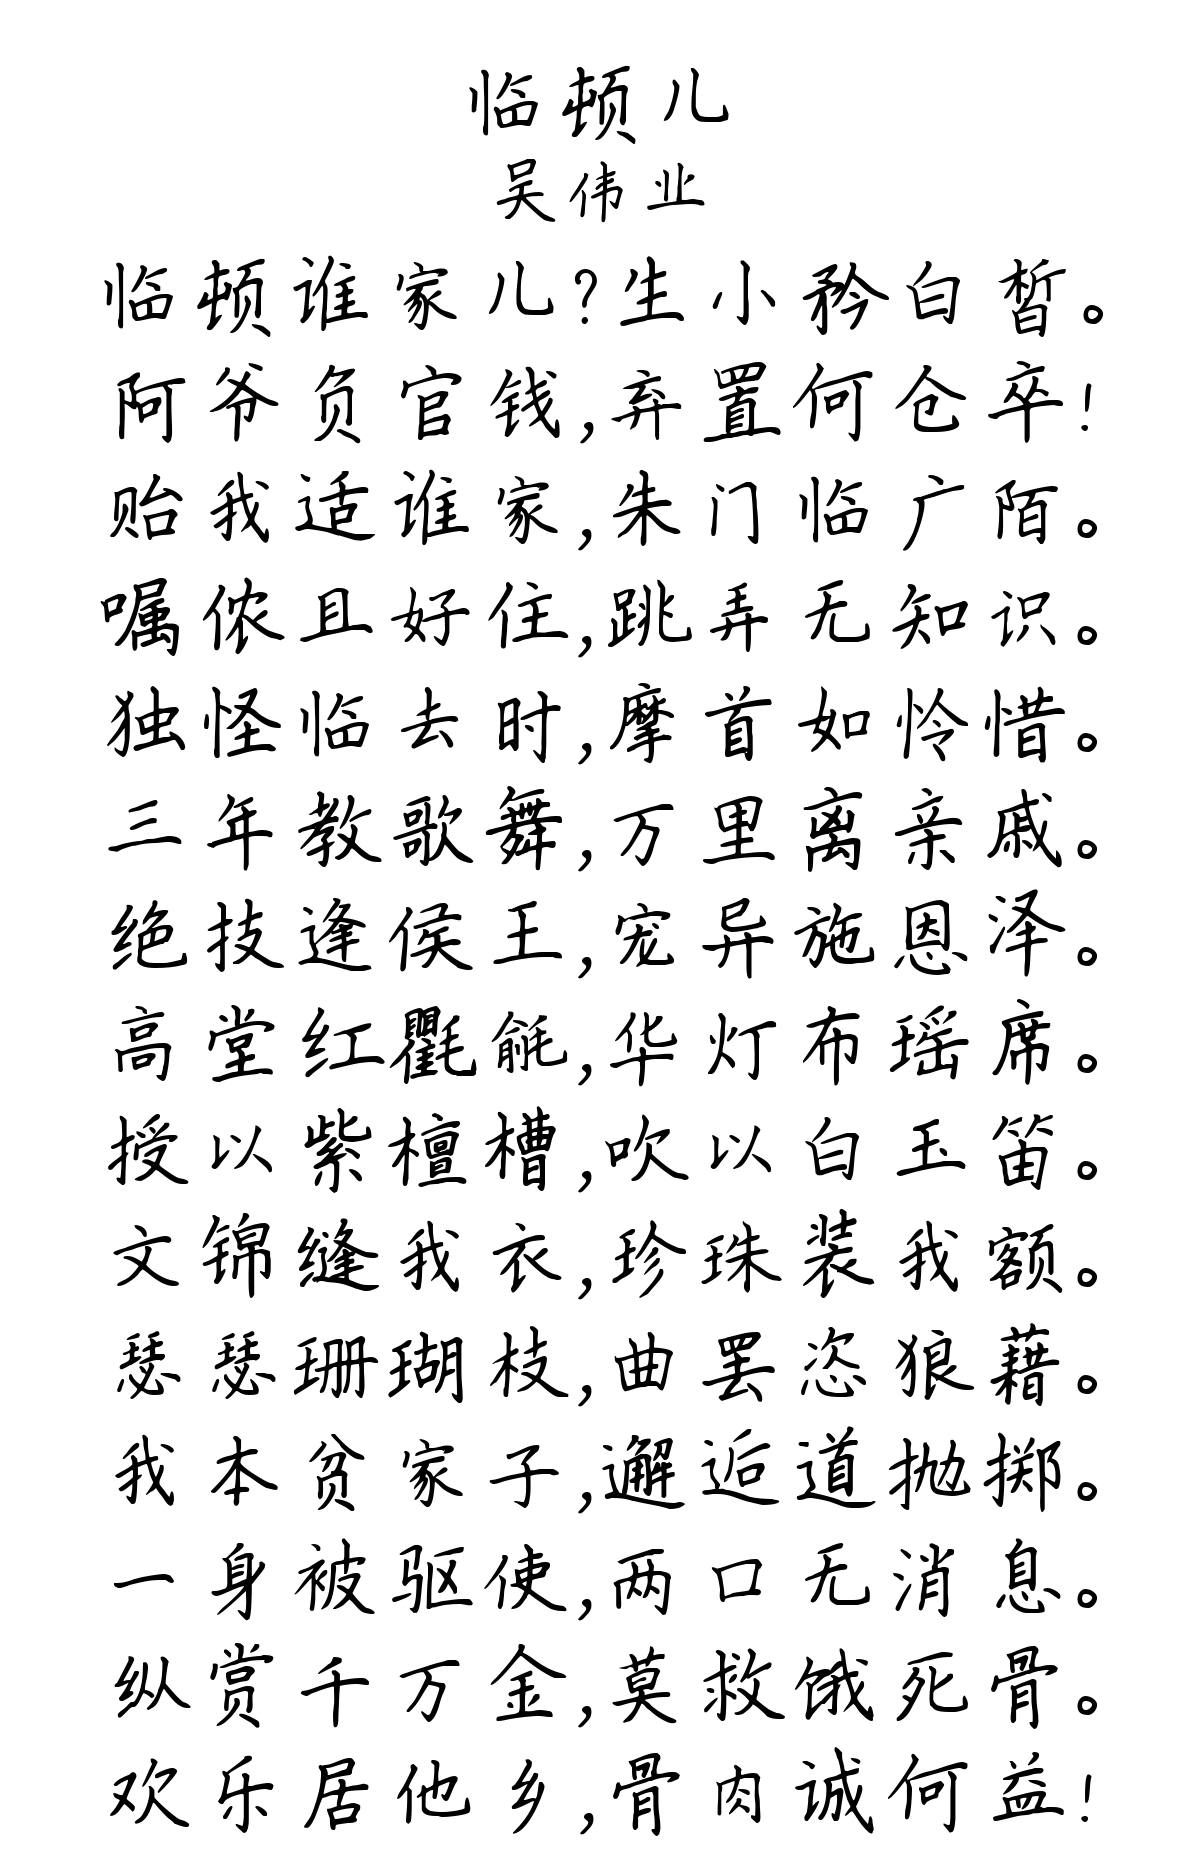 临顿儿
吴伟业
临顿谁家儿?生小矜白皙。
阿爷负官钱,弃置何仓卒!
贻我适谁家,朱门临广陌。
嘱侬且好住,跳弄无知识。
独怪临去时,摩首如怜惜。
三年教歌舞,万里离亲戚。
绝技逢侯王,宠异施恩泽。
高堂红氍毹,华灯布瑶席。
授以紫檀槽,吹以白玉笛。
文锦缝我衣,珍珠装我额。
瑟瑟珊瑚枝,曲罢恣狼藉。
我本贫家子,邂逅道抛掷。
一身被驱使,两口无消息。
纵赏千万金,莫救饿死骨。
欢乐居他乡,骨肉诚何益!